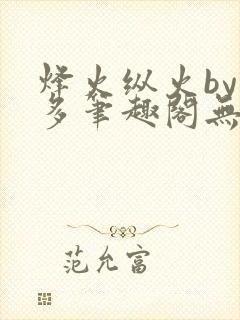 烽火纵火by
多笔趣阁無
范允富